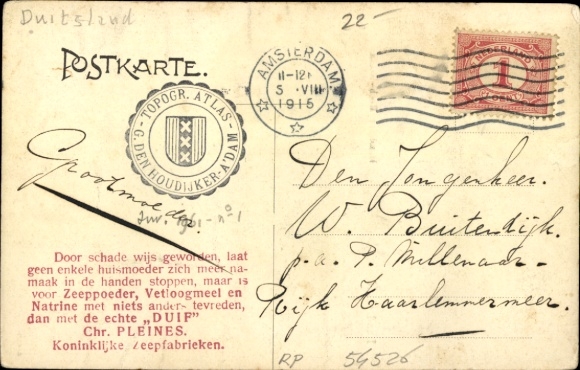 Duitsland
22-
POSTKARTE.
TOPOGR. ATLAS
G. DEN HOUDIJKER - A'DAM
AMSTERDAM.
11-12
5 .VIII
1915
NEDERLAND
1
Grootmoeder
Inv. 1961 - no 1
Den Jongenheer.
W. Buitendijk,
p.a. P. Millenaar-
Rijk Haarlemmermeer.
Door schade wijs geworden, laat
geen enkele huismoeder zich meer na-
maak in de handen stoppen, maar is
voor Zeeppoeder, Vetloogmeel en
Natrine met niets anders tevreden,
dan met de echte „DUIF"
Chr. PLEINES.
Koninklijke Zeepfabrieken.
RP 54526